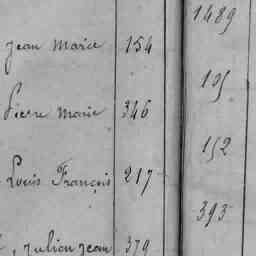 1489
Jean Marie 154
105
Pierre Marie 346
152
Louis François 217
393
, Julien Jean 379